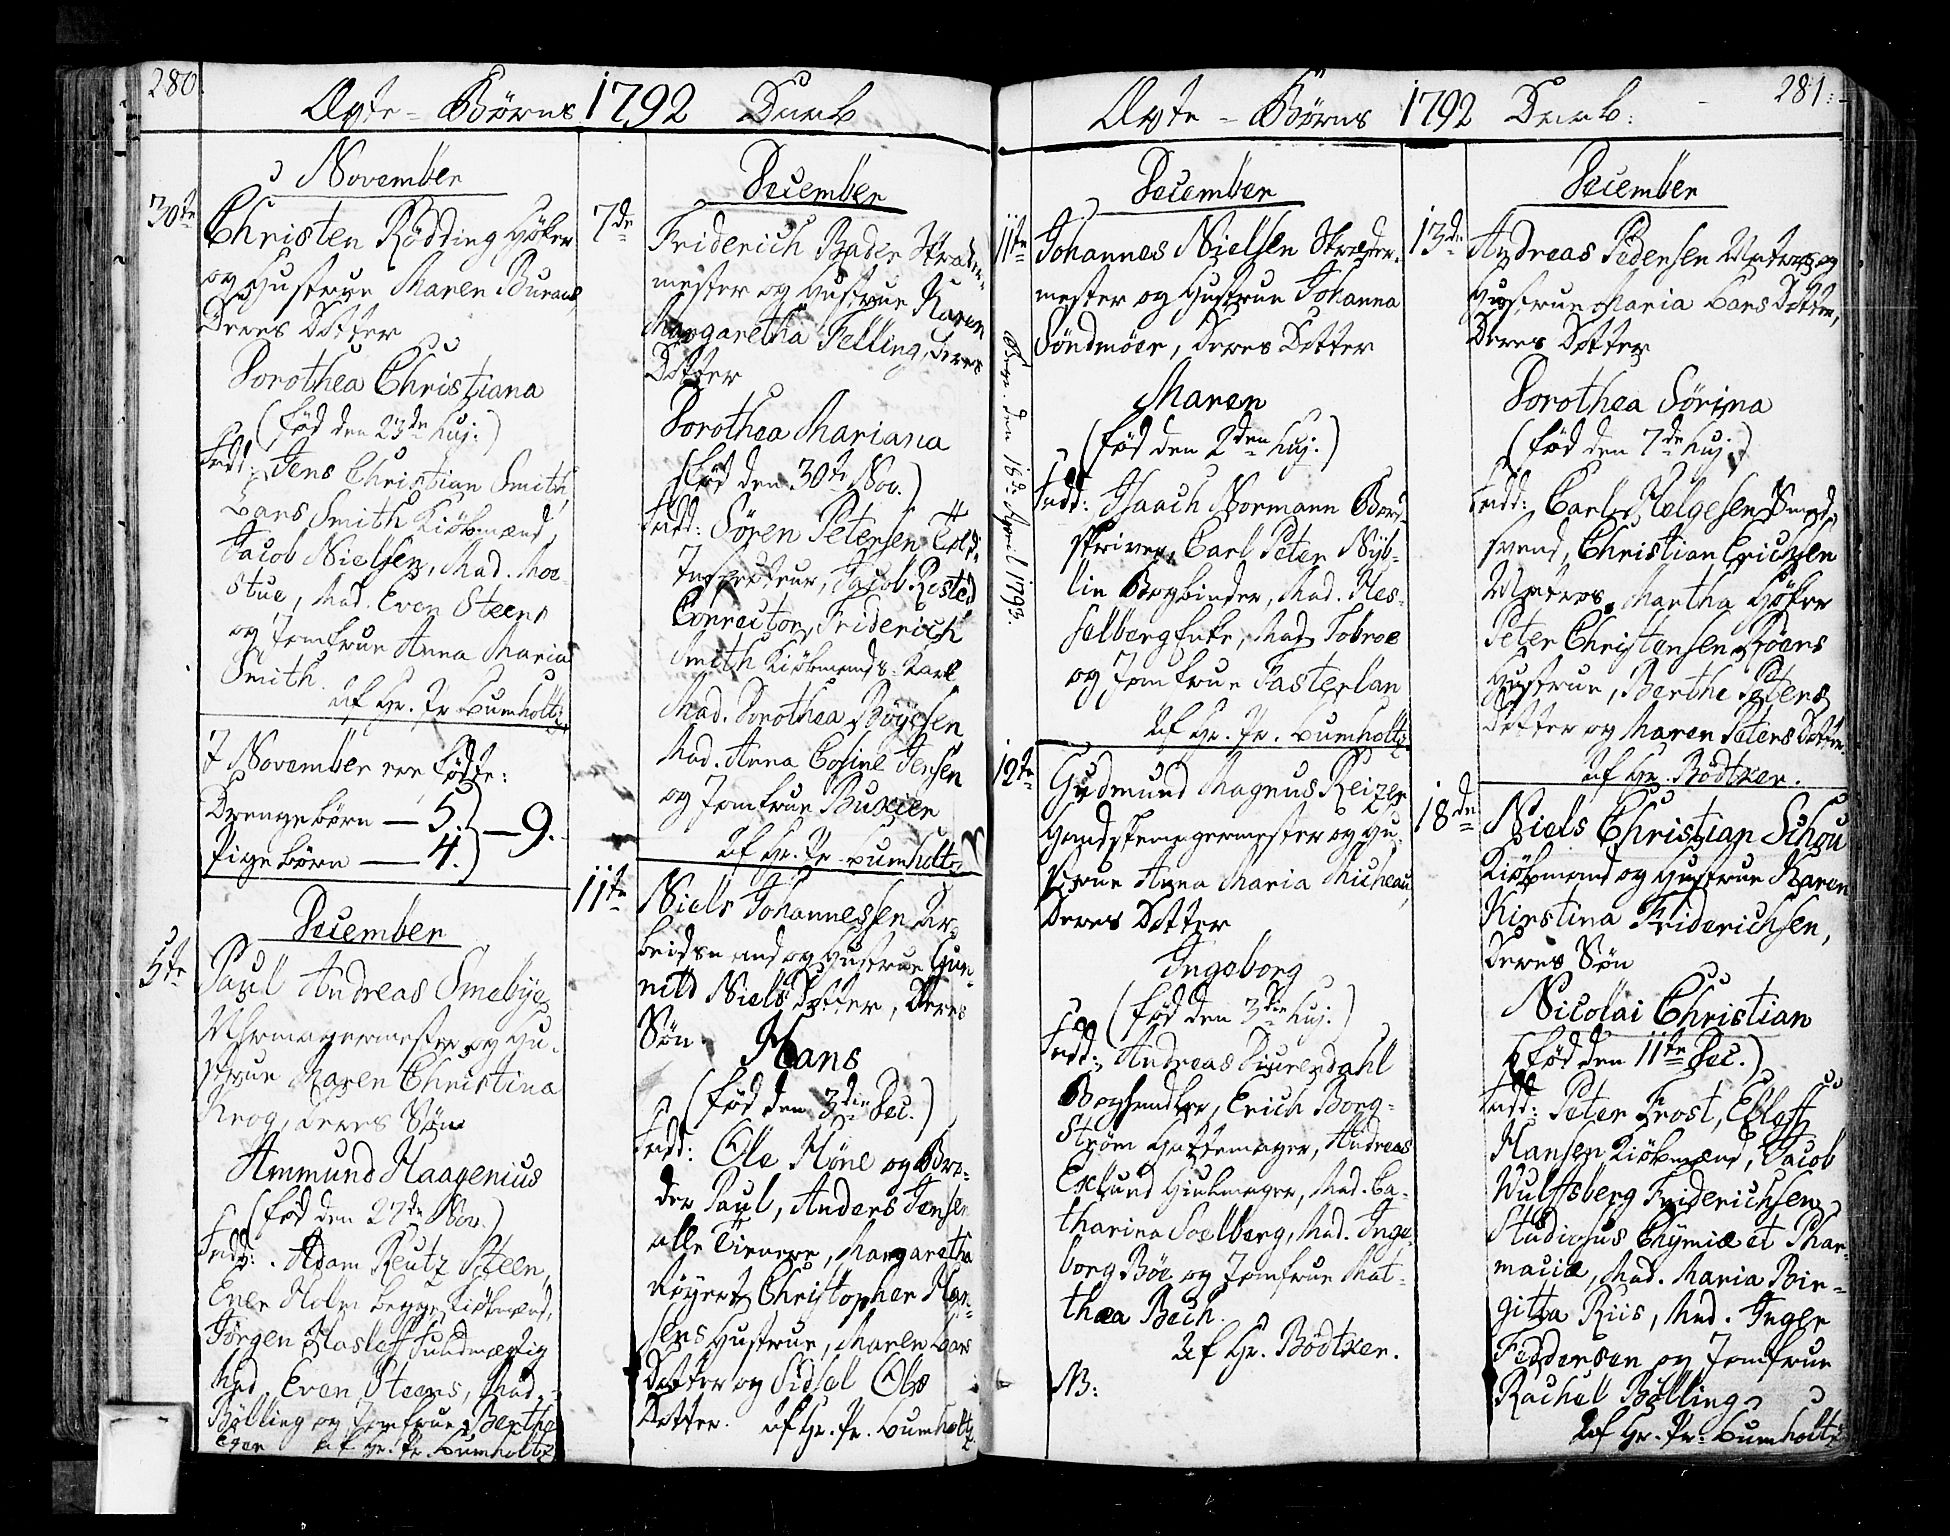 280.
Ægte - Børns 1792 Daab
November
30te
Christen Rödding Höker
og Hustrue Maren Buraas,
Deres Dotter
Dorothea Christiana
(fød den 23de huj:)
Fadd: Jens Christian Smith,
Lars Smith Kiöbmænd,
Jacob Nielsen, Mad. Moe-
stue, Mad. Even Steens
og Jomfrue Anna Maria
Smith.
af Hr. Pr. Lumholtz.
I November ere fødte:
Drengebörn — 5.
Pigebörn — 4. — 9.
December
5te
Paul Andreas Smebye
Uhrmagermester og Hu-
strue Maren Christina
Krog, deres Søn
Ammund Haagenius
(fød den 27de Nov.)
Fadd: Adam Reutz Steen,
Even Holm begge Kiöbmænd,
Jörgen Hasleff Fuldmægtig
Mad. Even Steens, Mad.
Bölling og Jomfrue Berthe
Eger af Hr. Pr. Lumholtz
December
7de
Friderich Bader Skræder-
mester og Hustrue Karen
Margaretha Felling, Deres
Dotter
Dorothea Mariana
(fød den 30te Nov.)
Fadd: Sören Petersen Told-
Inspecteur, Jacob Rosted
Conrector, Friderich
Smith Kiöbmands-Karl
Mad. Dorothea Böyesen
Mad. Anna Cosine Jensen
og Jomfrue Buxier
af Hr. Pr. Lumholtz
11te
Niels Johannessen Ar-
beidsmand og Hustrue Gun-
nild Niels Dotter, Deres
Søn
Hans
(fød den 3die Dec.)
Fadd: Ole Höne og Bro-
der Paul, Anders Jensen
alle Tienere, Margaretha
Röyert Christopher Han-
sens Hustrue, Maren Lars
Dotter og Sidsel Ols
Dotter. af Hr. Pr. Lumholtz
281.
Ægte - Børns 1792 Daab:
December
11te
Johannes Nielsen Skræder-
mester og Hustrue Johanna
Söndmöer, Deres Dotter
Maren
(fød den 2den huj.)
Fadd: Isaach Normann Bord-
skriver, Carl Peter Nÿb-
lin Bogbinder, Mad. Hes-
selberg Enke, Mad. Tobroe
og Jomfrue Pasterlan
af Hr. Pr. Lumholtz
den 18de April 1793.
12te
Gudmund Magnus Reizer
Handskemagermester og Hu-
strue Anna Maria Micheau,
Deres Dotter
Ingeborg
(fød den 3die huj.)
Fadd: Andreas Diurendahl
Boghandler, Erich Borg-
ström Hattemager, Andreas
Exlund Hiulmager, Mad. Ca-
tharina Soelberg, Mad. Inge-
borg Böe og Jomfrue Mat-
thea Bech.
af Hr. Bödtker.
NB:
December
13de
Andreas Pedersen Matros og
Hustrue Maria Lars Dotter,
Deres Dotter
Dorothea Sörina
(fød den 7de huj.)
Fadd: Carl Helgesen Smed-
svend, Christian Erichsen
Matros, Martha Höker
Peter Christensen Röers
Hustrue, Berthe Peters
Dotter og Maren Peters Dotter.
af Hr. Bödtker.
18de
Niels Christian Schou
Kiöbmand og Hustrue Karen
Kirstina Friderichsen,
Deres Søn
Nicolai Christian
(fød den 11te Dec.)
Fadd: Peter Frost, Ebleff
Hansen Kiöbmænd, Jacob
Wulffsberg Friderichsen
Studiosus Chÿmiæ et Phar-
maciæ, Mad. Maria Bir-
gitta Riis, Mad. Inger
Feddersen og Jomfrue
Rachel Bölling
af Hr. Pr. Lumholtz